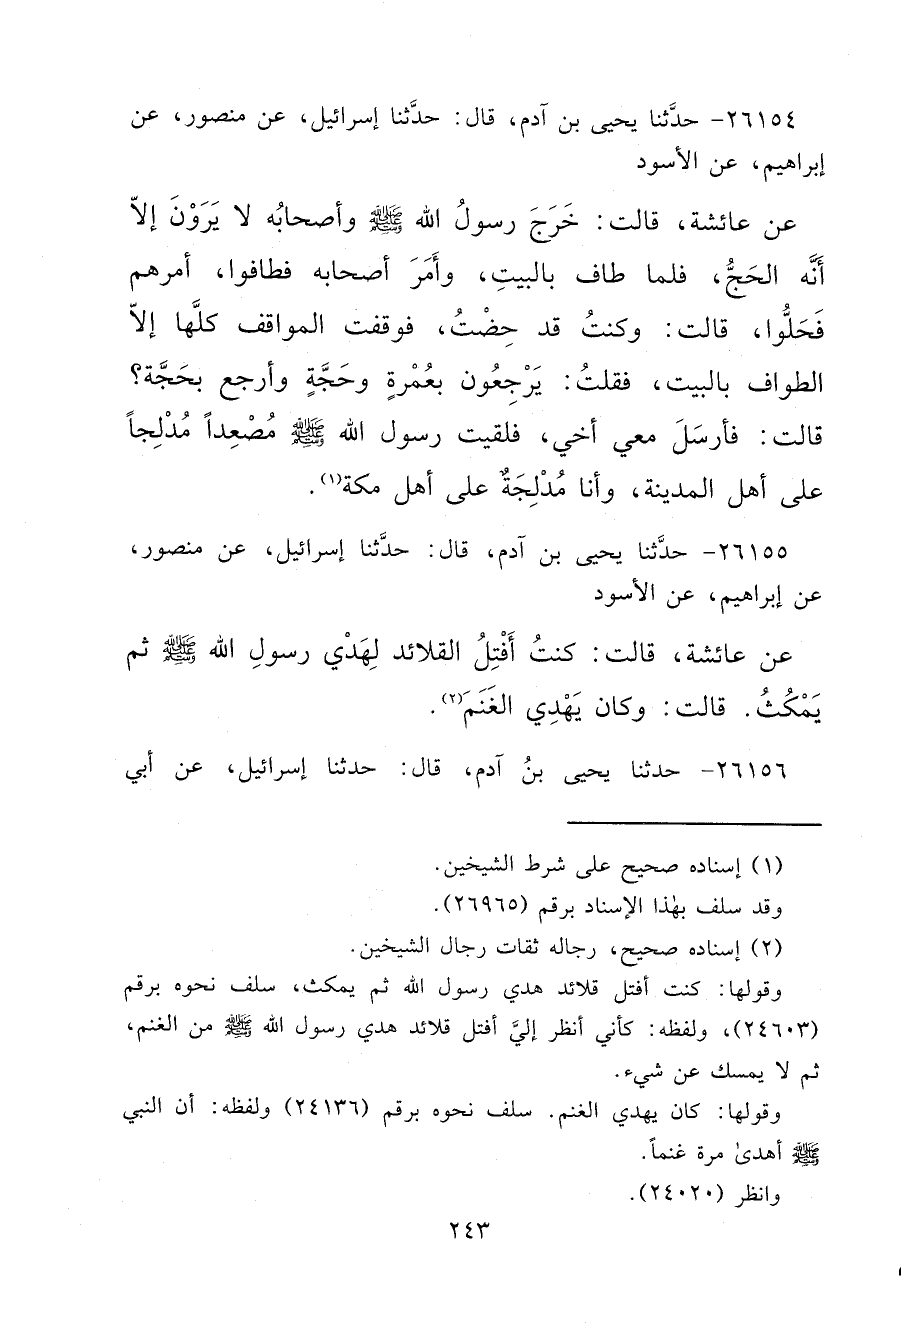 ٢٦١٥٤- حدَّثنا يحيى بن آدم، قال: حدَّثنا إسرائيل، عن منصور، عن
إبراهيم، عن الأسود
عن عائشة، قالت: خَرَجَ رسولُ الله ﷺ وأصحابُه لا يَرَوْنَ إلاّ
أنَّه الحَجُّ، فلما طاف بالبيتِ، وأَمَرَ أصحابه فطافوا، أمرهم
فَحَلُّوا، قالت: وكنتُ قد حِضْتُ، فوقفت المواقف كلَّها إلاّ
الطواف بالبيت، فقلتُ: يَرْجِعُون بعُمْرةٍ وحَجَّةٍ وأرجع بحَجَّة؟
قالت: فأرسَلَ معي أخي، فلقيت رسول الله ﷺ مُصْعِداً مُدْلِجاً
على أهل المدينة، وأنا مُدْلِجَةٌ على أهل مكة(١).
٢٦١٥٥- حدَّثنا يحيى بن آدم، قال: حدَّثنا إسرائيل، عن منصور،
عن إبراهيم، عن الأسود
عن عائشة، قالت: كنتُ أَفْتِلُ القلائد لِهَدْي رسولِ الله ﷺ ثم
يَمْكُثُ. قالت: وكان يَهْدِي الغَنَمَ(٢).
٢٦١٥٦- حدثنا يحيى بنُ آدم، قال: حدثنا إسرائيل، عن أبي
(١) إسناده صحيح على شرط الشيخين.
وقد سلف بهٰذا الإسناد برقم (٢٦٩٦٥).
(٢) إسناده صحيح، رجاله ثقات رجال الشيخين.
وقولها: كنت أفتل قلائد هدي رسول الله ثم يمكث، سلف نحوه برقم
(٢٤٦٠٣)، ولفظه: كأني أنظر إليَّ أفتل قلائد هدي رسول الله ﷺ من الغنم،
ثم لا يمسك عن شيء.
وقولها: كان يهدي الغنم. سلف نحوه برقم (٢٤١٣٦) ولفظه: أن النبي
ﷺ أهدىٰ مرة غنماً.
وانظر (٢٤٠٢٠).
٢٤٣